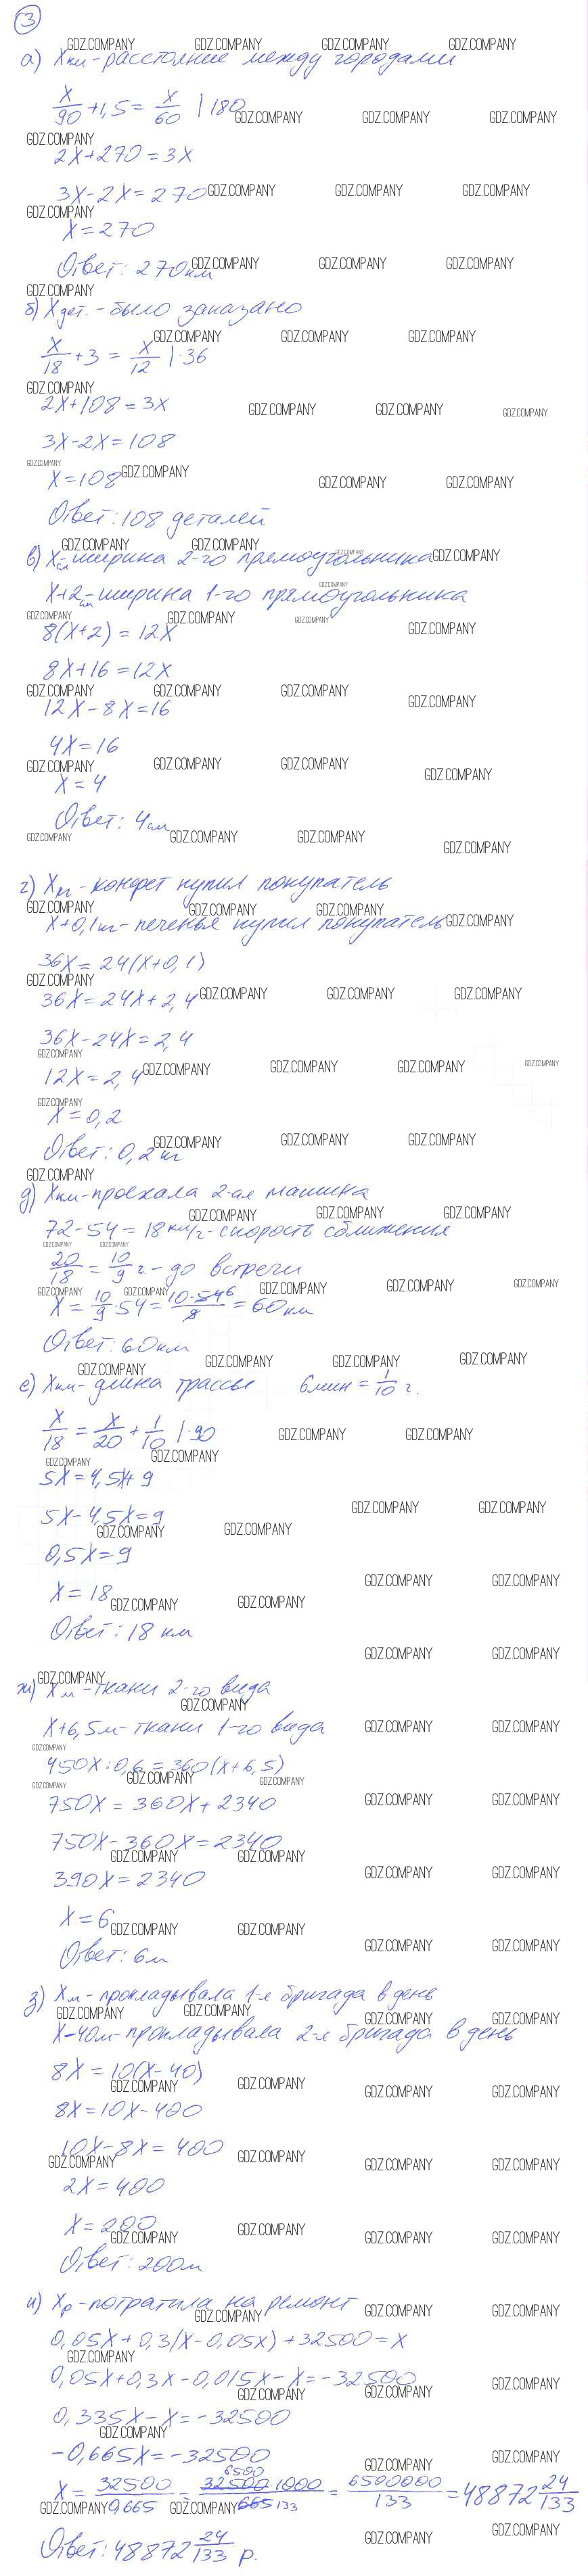 3
а) Xкм - расстояние между городами
X/90 + 1,5 = X/60 | 180
2X+270=3X
3X-2X=270
X=270
Ответ: 270км
б) Xдет. - было заказано
X/18 + 3 = X/12 | ·36
2X+108=3X
3X-2X=108
X=108
Ответ: 108 деталей
в) Xсм - ширина 2-го прямоугольника
X+2см - ширина 1-го прямоугольника
8(X+2)=12X
8X+16=12X
12X-8X=16
4X=16
X=4
Ответ: 4см
г) Xкг - конфет купил покупатель
X+0,1кг - печенья купил покупатель
36X=24(X+0,1)
36X=24X+2,4
36X-24X=2,4
12X=2,4
X=0,2
Ответ: 0,2кг
д) Xкм - проехала 2-ая машина
72-54=18км/ч - скорость сближения
20/18 = 10/9 ч - до встречи
X = 10/9 · 54 = 10·54 6/9 = 60км
Ответ: 60км
е) Xкм - длина трассы 6мин = 1/10 ч.
X/18 = X/20 + 1/10 | ·90
5X=4,5X+9
5X-4,5X=9
0,5X=9
X=18
Ответ: 18 км
ж) Xм - ткани 2-го вида
X+6,5м - ткани 1-го вида
450X:0,6=360(X+6,5)
750X=360X+2340
750X-360X=2340
390X=2340
X=6
Ответ: 6м
з) Xм - прокладывала 1-я бригада в день
X-40м - прокладывала 2-я бригада в день
8X=10(X-40)
8X=10X-400
10X-8X=400
2X=400
X=200
Ответ: 200м
и) Xр - потратила на ремонт
0,05X+0,3(X-0,05X)+32500=X
0,05X+0,3X-0,015X-X=-32500
0,335X-X=-32500
-0,665X=-32500
X = 32500/0,665 = 32500 6500·1000/665 133 = 6500000/133 = 48872 24/133
Ответ: 48872 24/133 р.
GDZ.COMPANY